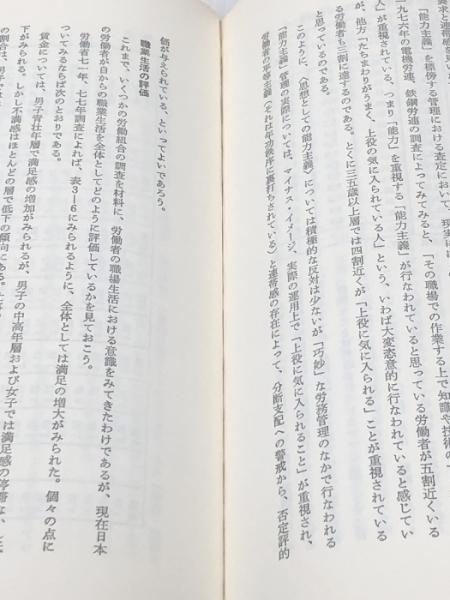 要求と連帯感が存在しており、現実に
「能力主義」を標傍する管理における査定において、
一九七六年の電機労連、鉄鋼労連の調査によってみてみると、「その職場での作業する上で知識や技術の
人」が重視されている、つまり「能力」を重視する「能力主義」が行なわれていると思っている労働者が五割近くいる
が、他方「たちまわりがうまく、上役の気に入られている人」という、いわば大変恣意的に行なわれていると感じてい
る労働者も三割に達するのである。とくに三五歳以上層では四割近くが「上役に気に入られる」ことが重視されている
と思っているのである。
このように、〈思想としての能力主義〉については積極的な反対は少ないが「巧妙」な労務管理のなかで行なわれる
「能力主義」管理の実際については、マイナス・イメージ、実際の運用上で「上役に気に入られる」ことが重視され、
労働者の平等主義(それは年功秩序に裏打ちされている)と連帯感の存在によって、分断支配への警戒から、否定評的
価が与えられている、といってよいであろう。
職業生活の評価
これまで、いくつかの労働組合の調査を材料に、労働者の職場生活における意識をみてきたわけであるが、現在日本
の労働者が日からの職業生活を全体としてどのように評価しているかを見ておこう。
労働省七一年、七七年調査によれば、表3―6にみられるように、全体としては満足の増大がみられた。個々の点に
ついてみるならば次のとおりである。
賃金については、男子青壮年層で満足感の増加がみられるが、男子の中高年層および女子では満足感の停滞な
下がみられる。しかし不満感はほとんどの層で低下の傾向にある。
の割合は、男子